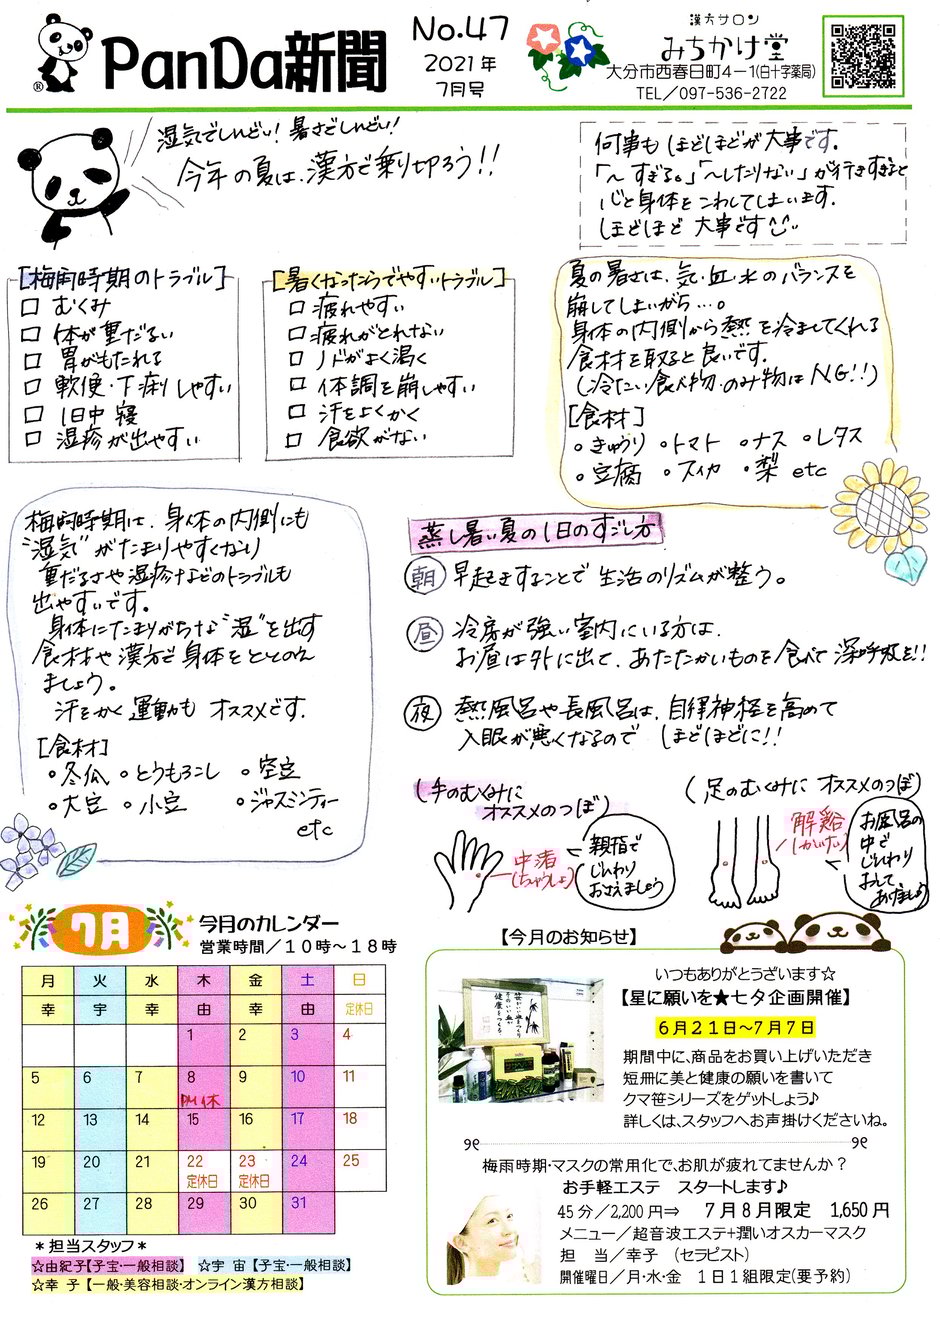 PanDa新聞
®
No.47
2021年
7月号
漢方サロン
みちかけ堂
大分市西春日町4-1(白十字薬局)
TEL/097-536-2722
湿気でしんどい！暑さでしんどい！
今年の夏は、漢方で乗り切ろう！！
何事もほどほどが大事です。
「〜すぎる。」「〜したりない」が行きすぎると
心と身体をこわしてしまいます。
ほどほど大事です
[梅雨時期のトラブル]
□ むくみ
□ 体が重だるい
□ 胃がもたれる
□ 軟便・下痢しやすい
□ 1日中寝
□ 湿疹が出やすい
[暑くなったらでやすいトラブル]
□ 疲れやすい
□ 疲れがとれない
□ ノドがよく渇く
□ 体調を崩しやすい
□ 汗をよくかく
□ 食欲がない
夏の暑さは、気・血・水のバランスを
崩してしまいがち…。
身体の内側から熱を冷ましてくれる
食材を取ると良いです。
(冷たい食べ物・のみ物はNG!!)
[食材]
・きゅうり ・トマト ・ナス ・レタス
・豆腐 ・スイカ ・梨 etc
梅雨時期は、身体の内側にも
"湿気"がたまりやすくなり
重だるさや湿疹などのトラブルも
出やすいです。
身体にたまりがちな"湿"を出す
食材や漢方で身体をととのえ
ましょう。
汗をかく運動もオススメです。
[食材]
・冬瓜 ・とうもろこし ・空豆
・大豆 ・小豆 ・ジャスミンティー
etc
蒸し暑い夏の1日のすごし方
朝 早起きすることで生活のリズムが整う。
昼 冷房が強い室内にいる方は、
お昼は外に出て、あたたかいものを食べて深呼吸を!!
夜 熱風呂や長風呂は、自律神経を高めて
入眠が悪くなるので ほどほどに!!
(手のむくみに
オススメのつぼ)
中渚
(ちゅうしょ)
親指で
じんわり
おさえましょう
(足のむくみに オススメのつぼ)
解谿
(かいけい)
お風呂の
中で
じんわり
おして
あげましょう
7月
今月のカレンダー
営業時間/10時〜18時
月 火 水 木 金 土 日
幸 宇 幸 由 幸 由 定休日
1 2 3 4
5 6 7 8 9 10 11
PM休
12 13 14 15 16 17 18
19 20 21 22 23 24 25
定休日 定休日
26 27 28 29 30 31
＊担当スタッフ＊
☆由紀子【子宝・一般相談】 ☆宇 宙【子宝・一般相談】
☆幸 子【一般・美容相談・オンライン漢方相談】
【今月のお知らせ】
いつもありがとうざいます☆
【星に願いを★七夕企画開催】
6月21日〜7月7日
期間中に、商品をお買い上げいただき
短冊に美と健康の願いを書いて
クマ笹シリーズをゲットしよう♪
詳しくは、スタッフへお声掛けくださいね。
梅雨時期・マスクの常用化で、お肌が疲れてませんか？
お手軽エステ スタートします♪
45分/2,200円⇒ 7月8月限定 1,650円
メニュー/超音波エステ+潤いオスカーマスク
担 当/幸子 (セラピスト)
開催曜日/月・水・金 1日1組限定(要予約)